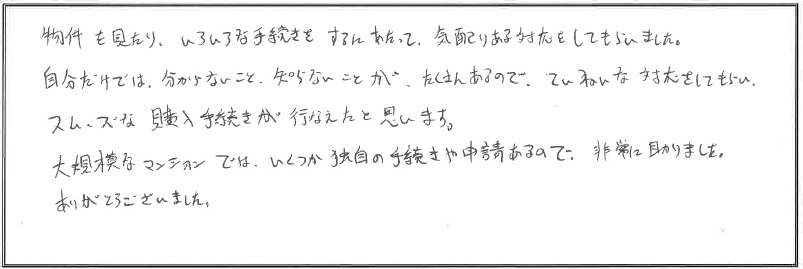 物件を見たり、いろいろな手続きをするにあたって、気配りある対応をしてもらいました。
自分だけでは、分からないこと、知らないことが、たくさんあるので、ていねいな対応をしてもらい、
スムーズな購入手続きが行なえたと思います。
大規模なマンションでは、いくつか独自の手続きや申請あるので、非常に助かりました。
ありがとうございました。